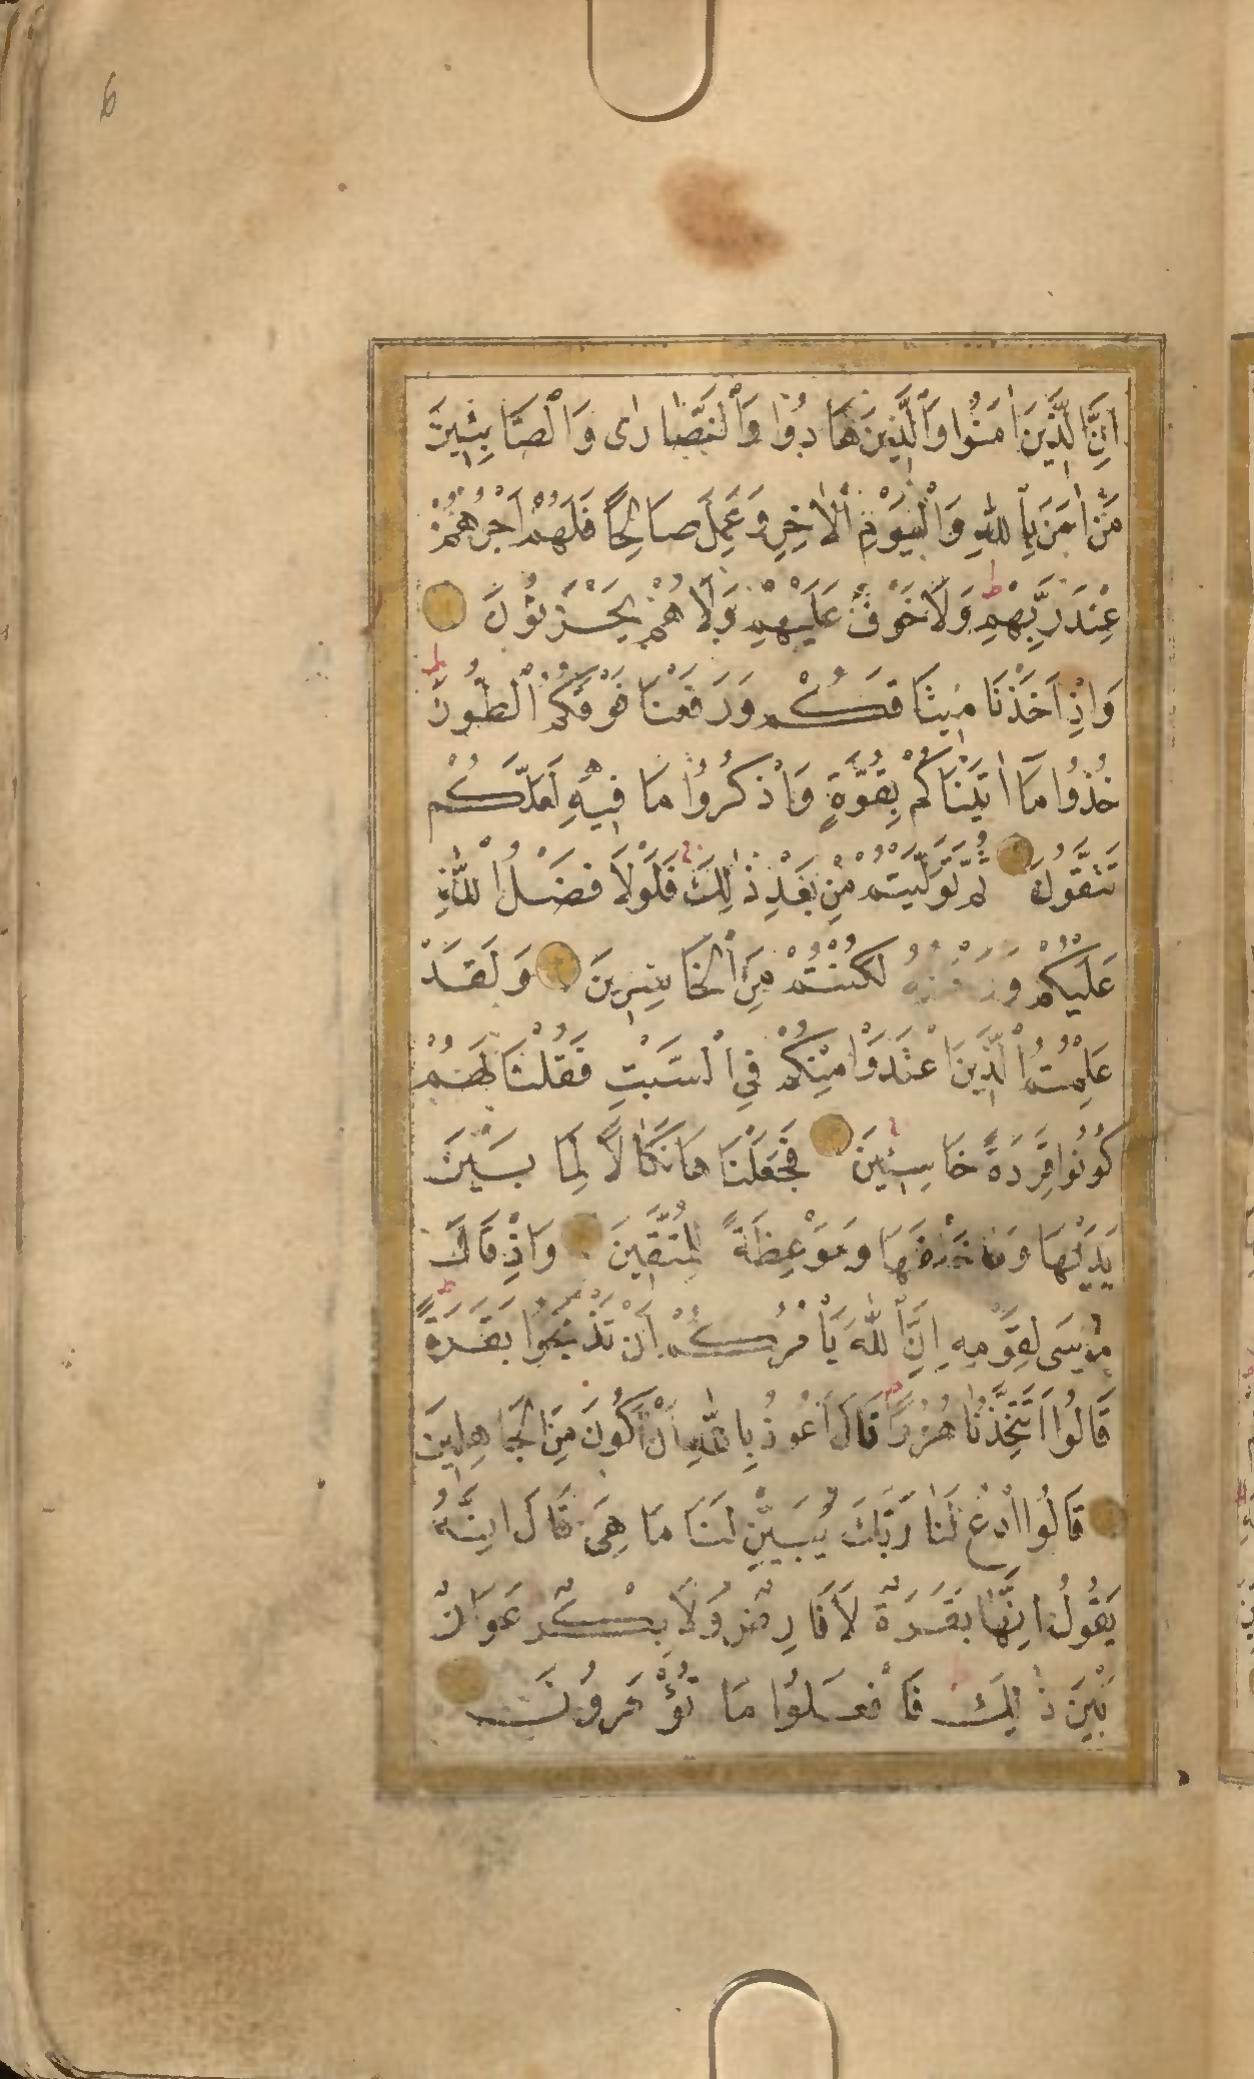 6
اِنَّ الَّذٖينَ اٰمَنُوا وَالَّذٖينَ هَادُوا وَالنَّصَارٰى وَالصَّابِئٖينَ
مَنْ اٰمَنَ بِاللّٰهِ وَالْيَوْمِ الْاٰخِرِ وَعَمِلَ صَالِحًا فَلَهُمْ اَجْرُهُمْ
عِنْدَ رَبِّهِمْ ط وَلَا خَوْفٌ عَلَيْهِمْ وَلَا هُمْ يَحْزَنُونَ
وَاِذْ اَخَذْنَا مٖيثَاقَكُمْ وَرَفَعْنَا فَوْقَكُمُ الطُّورَ ط
خُذُوا مَا اٰتَيْنَاكُمْ بِقُوَّةٍ وَاذْكُرُوا مَا فٖيهِ لَعَلَّكُمْ
تَتَّقُونَ ثُمَّ تَوَلَّيْتُمْ مِنْ بَعْدِ ذٰلِكَ فَلَوْلَا فَضْلُ اللّٰهِ
عَلَيْكُمْ وَرَحْمَتُهُ لَكُنْتُمْ مِنَ الْخَاسِرٖينَ وَلَقَدْ
عَلِمْتُمُ الَّذٖينَ اعْتَدَوْا مِنْكُمْ فِي السَّبْتِ فَقُلْنَا لَهُمْ
كُونُوا قِرَدَةً خَاسِئٖينَ فَجَعَلْنَاهَا نَكَالًا لِمَا بَيْنَ
يَدَيْهَا وَمَا خَلْفَهَا وَمَوْعِظَةً لِلْمُتَّقٖينَ وَاِذْ قَالَ
مُوسٰى لِقَوْمِهٖ اِنَّ اللّٰهَ يَأْمُرُكُمْ اَنْ تَذْبَحُوا بَقَرَةً ط
قَالُوا اَتَتَّخِذُنَا هُزُوًا ط قَالَ اَعُوذُ بِاللّٰهِ اَنْ اَكُونَ مِنَ الْجَاهِلٖينَ
قَالُوا ادْعُ لَنَا رَبَّكَ يُبَيِّنْ لَنَا مَا هِيَ قَالَ اِنَّهُ
يَقُولُ اِنَّهَا بَقَرَةٌ لَا فَارِضٌ وَلَا بِكْرٌ عَوَانٌ
بَيْنَ ذٰلِكَ ط فَافْعَلُوا مَا تُؤْمَرُونَ